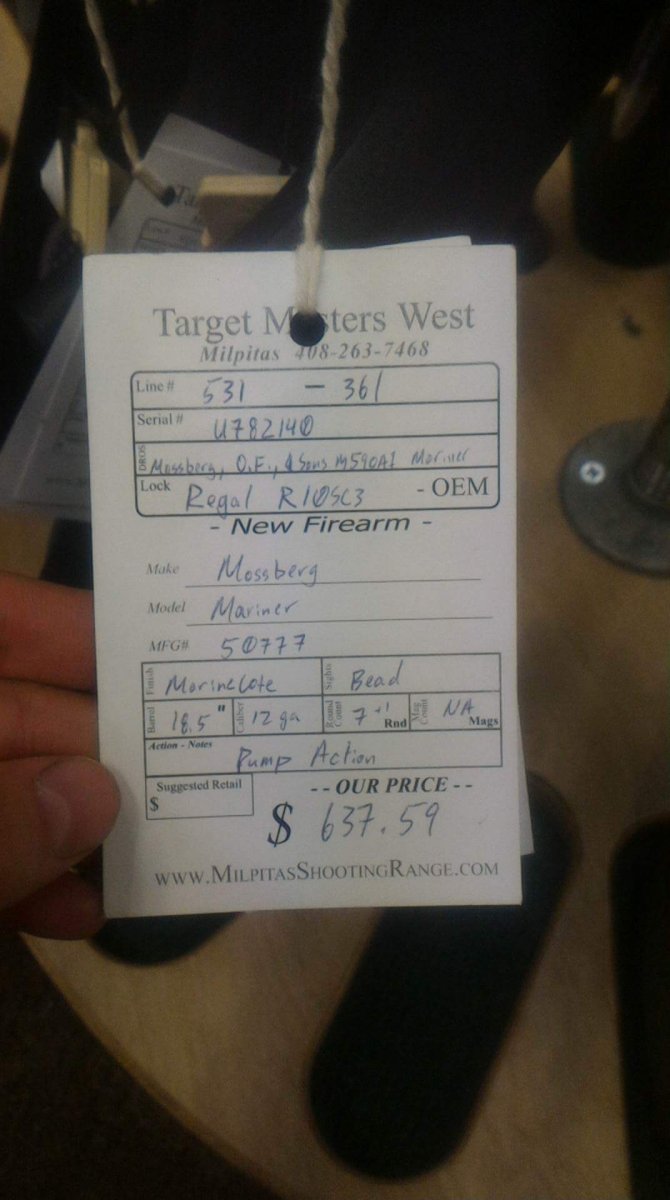 Target Masters West
Milpitas 408-263-7468
Line # 531 - 361
Serial # U782140
DROS Mossberg, O.F., & Sons M590A1 Mariner
Lock Regal R10SC3 - OEM
- New Firearm -
Make Mossberg
Model Mariner
MFG# 50777
Finish MarineCote Sights Bead
Barrel 18.5" Caliber 12 ga Round Count 7+1 Rnd Mag Count NA Mags
Action - Notes
Pump Action
Suggested Retail
$
-- OUR PRICE --
$ 637.59
WWW.MILPITASSHOOTINGRANGE.COM